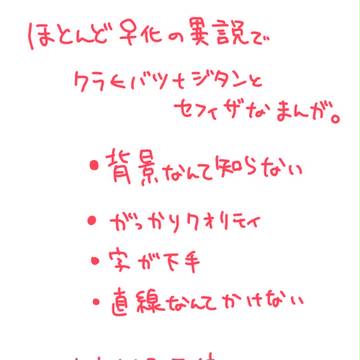 ほとんど早化の異説で
クラ←バツ+ジタンと
セフィザなまんが。
•背景なんて知らない
•がっかりクオリティ
•字が下手
•直線なんてかけない